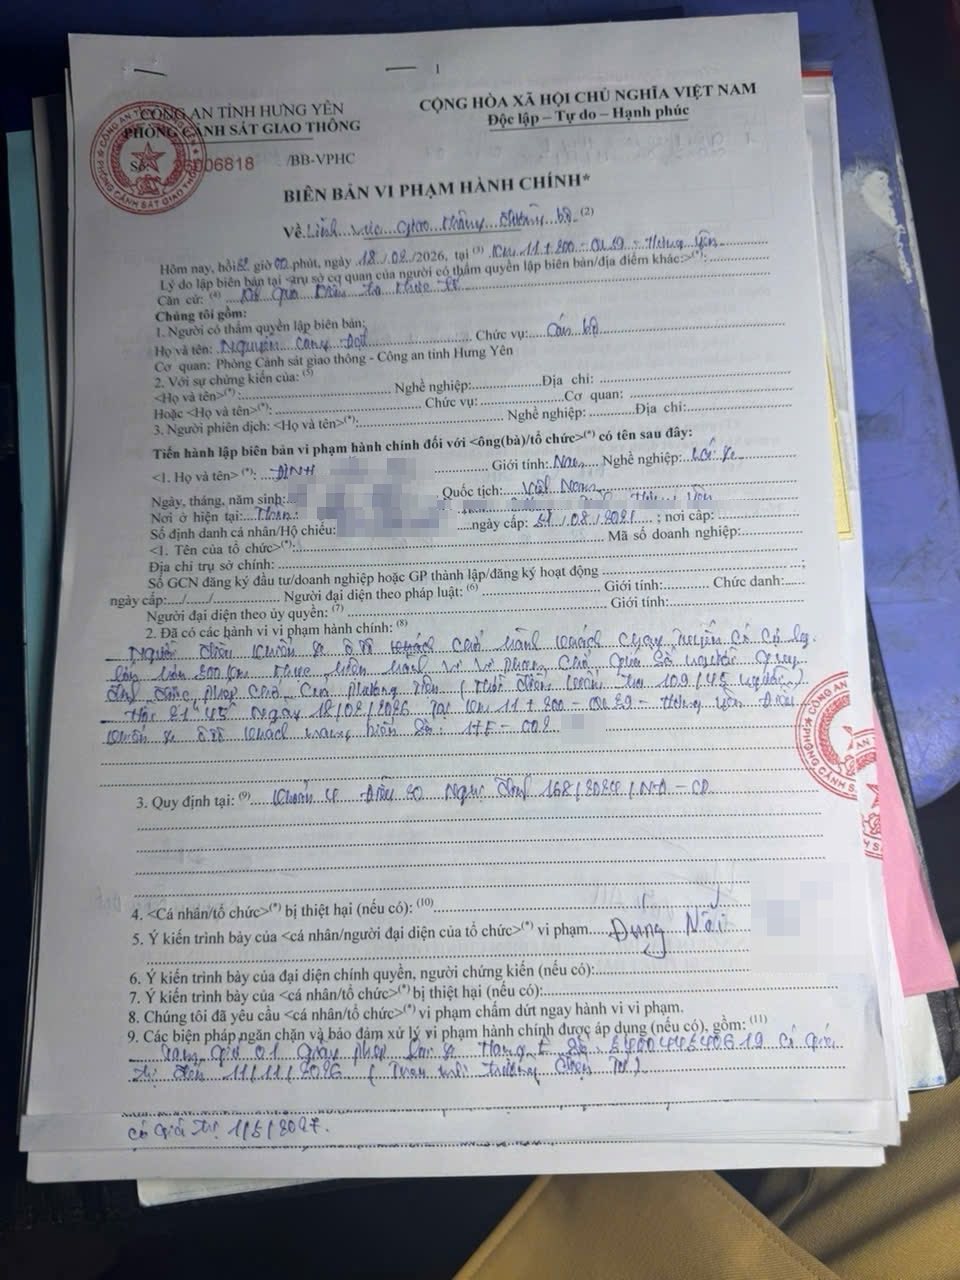 1
CÔNG AN TỈNH HƯNG YÊN
PHÒNG CẢNH SÁT GIAO THÔNG
CỘNG HÒA XÃ HỘI CHỦ NGHĨA VIỆT NAM
Độc lập – Tự do – Hạnh phúc
Số: 26006818 /BB-VPHC
BIÊN BẢN VI PHẠM HÀNH CHÍNH*
Về Lĩnh vực giao thông đường bộ (2)
Hôm nay, hồi 22 giờ 00 phút, ngày 18/02/2026, tại (3) Km 11 + 200 - QL39 - Hưng Yên
Lý do lập biên bản tại <trụ sở cơ quan của người có thẩm quyền lập biên bản/địa điểm khác:>(*):
Căn cứ: (4)
Chúng tôi gồm:
1. Người có thẩm quyền lập biên bản:
Họ và tên: Nguyễn Công Đạt Chức vụ: Cán bộ
Cơ quan: Phòng Cảnh sát giao thông - Công an tỉnh Hưng Yên
2. Với sự chứng kiến của: (5)
<Họ và tên>(*): Nghề nghiệp: Địa chỉ:
Hoặc <Họ và tên>(*): Chức vụ: Cơ quan:
3. Người phiên dịch: <Họ và tên>(*): Nghề nghiệp: Địa chỉ:
Tiến hành lập biên bản vi phạm hành chính đối với <ông(bà)/tổ chức>(*) có tên sau đây:
<1. Họ và tên>(*): ĐINH Giới tính: Nam Nghề nghiệp: Lái xe
Ngày, tháng, năm sinh: Quốc tịch: Việt Nam
Nơi ở hiện tại: Hưng Yên
Số định danh cá nhân/Hộ chiếu: ngày cấp: /08/2021 ; nơi cấp:
<1. Tên của tổ chức>(*): Mã số doanh nghiệp:
Địa chỉ trụ sở chính:
Số GCN đăng ký đầu tư/doanh nghiệp hoặc GP thành lập/đăng ký hoạt động ;
ngày cấp:..../...../........ Người đại diện theo pháp luật: (6) Giới tính: Chức danh:
Người đại diện theo ủy quyền: (7) Giới tính:
2. Đã có các hành vi vi phạm hành chính: (8)
- Người điều khiển xe ô tô khách chở hành khách chạy tuyến có cự ly
lớn hơn 300 Km thực hiện hành vi vi phạm chở quá số người quy
định được phép chở của phương tiện (Thời điểm kiểm tra 109/45 người)
- Hồi 21h45' Ngày 18/02/2026 Tại Km 11 + 200 - QL39 - Hưng Yên Điều
khiển xe ô tô khách mang biển số: 17F - 002
3. Quy định tại: (9) Khoản 4 Điều 20 Nghị định 168/2024/NĐ-CP
4. <Cá nhân/tổ chức>(*) bị thiệt hại (nếu có): (10)
5. Ý kiến trình bày của <cá nhân/người đại diện của tổ chức>(*) vi phạm Đúng Nội
6. Ý kiến trình bày của đại diện chính quyền, người chứng kiến (nếu có):
7. Ý kiến trình bày của <cá nhân/tổ chức>(*) bị thiệt hại (nếu có):
8. Chúng tôi đã yêu cầu <cá nhân/tổ chức>(*) vi phạm chấm dứt ngay hành vi vi phạm.
9. Các biện pháp ngăn chặn và bảo đảm xử lý vi phạm hành chính được áp dụng (nếu có), gồm: (11)
- Tạm giữ 01 Giấy phép lái xe Hạng E Số: có giá
trị đến 11/11/2026 (
có giá trị 1/5/2027.